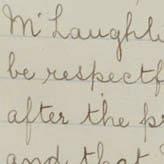 McLaughl
be respectf
after the
and that